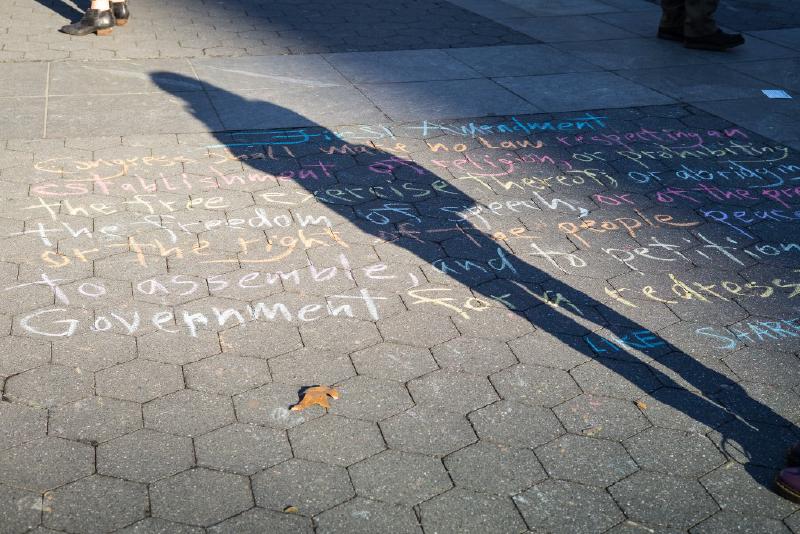 First Amendment
Congress shall make no law respecting an
establishment of religion, or prohibiting
the free exercise thereof, or abridgin
the freedom of speech, or of the pre
or the right of the people peace
to assemble, and to petition
Government for a redress
LIKE SHARE